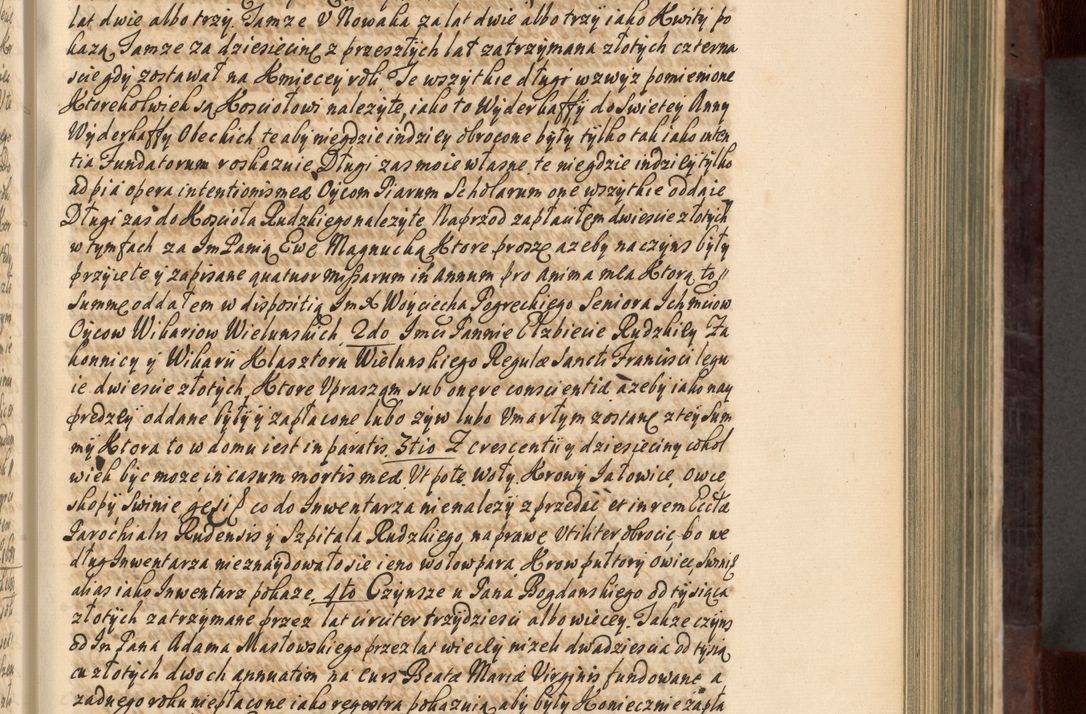 lat dwie albo trzy. Tamze V Nowaka za lat dwie albo trzy iako Kwity po
kazą. Tamze za dziesiecinę z przeszłych lat zatrzymana złotych czterna
scie gdy zostawał na Kmiecey roli. Te wszytkie długi wzwyz pomienione
Ktorekolwiek są Kosciołowi nalezyte, iako to Wyderkaffy do Swietey Anny
Wyderkaffy Obeckich te aby niegdzie indziey obrocone były tylko tak iako inten
tia Fundatorum roskazuie. Długi zas moie własne te niegdzie indziey tylko
ad pia opera intentionis meæ Oycom Piarum Scholarum one wszytkie oddaię
Długi zas do Koscioła Rudzkiego nalezyte. Naprzod zapłaciułem dwiescie złotych
w tymfach za Jm Panią Ewę Magnucką Ktore proszę azeby na czyns były
przyięte y zapisane quatuor Missarum in annum pro anima mea Ktorą to
Summę oddałem w dispositią Jm X Woyciecha Pogreckiego Seniora Ichmciow
Oycow Wikariow Wielunskich. 2do Jmci Pannie Elzbiecie Rudzkiey Za
konnicy y Wikarii Klasztoru Wielunskiego Regulæ Sancti Francisci legu
ie dwiescie złotych, Ktore Vpraszam sub onere conscientiæ azeby iako nay
prędzey oddane były y zapłacone lubo zyw lubo Vmarłym zostanę z tey Sum
my Ktora to w domu iest in paratis. 3tio Z crescentii y dziesięciny cokol
wiek byc moze in casum mortis meæ Vt pote Woły, Krowy Jałowice, Owce
skopy Swinie gęsi co do Inwentarza nienalezy zprzedac et in rem Ecclæ
Parochialis Rudensis y Szpitala Rudzkiego, naprawę Vtiliter obrocic, bo we
dług Inwentarza nieznaydowało się ieno wołow para Krow pułtory owiec Swini
alias iako Inwentarz pokaze. 4to Czynsze u Pana Bogdanskiego od tysiąca
złotych zatrzymane przez lat circiter trzydziesci albo wiecey. Takze czyns
od Jm Pana Adama Masłowskiego przez lat wiecey nizeli dwadziescia od tysią
cu złotych dwoch annuatim na Curs Beatæ Mariæ Virginis fundowane a
zadnego roku niepłacone iako regestra pokazuią aby były Koniecznie zapła